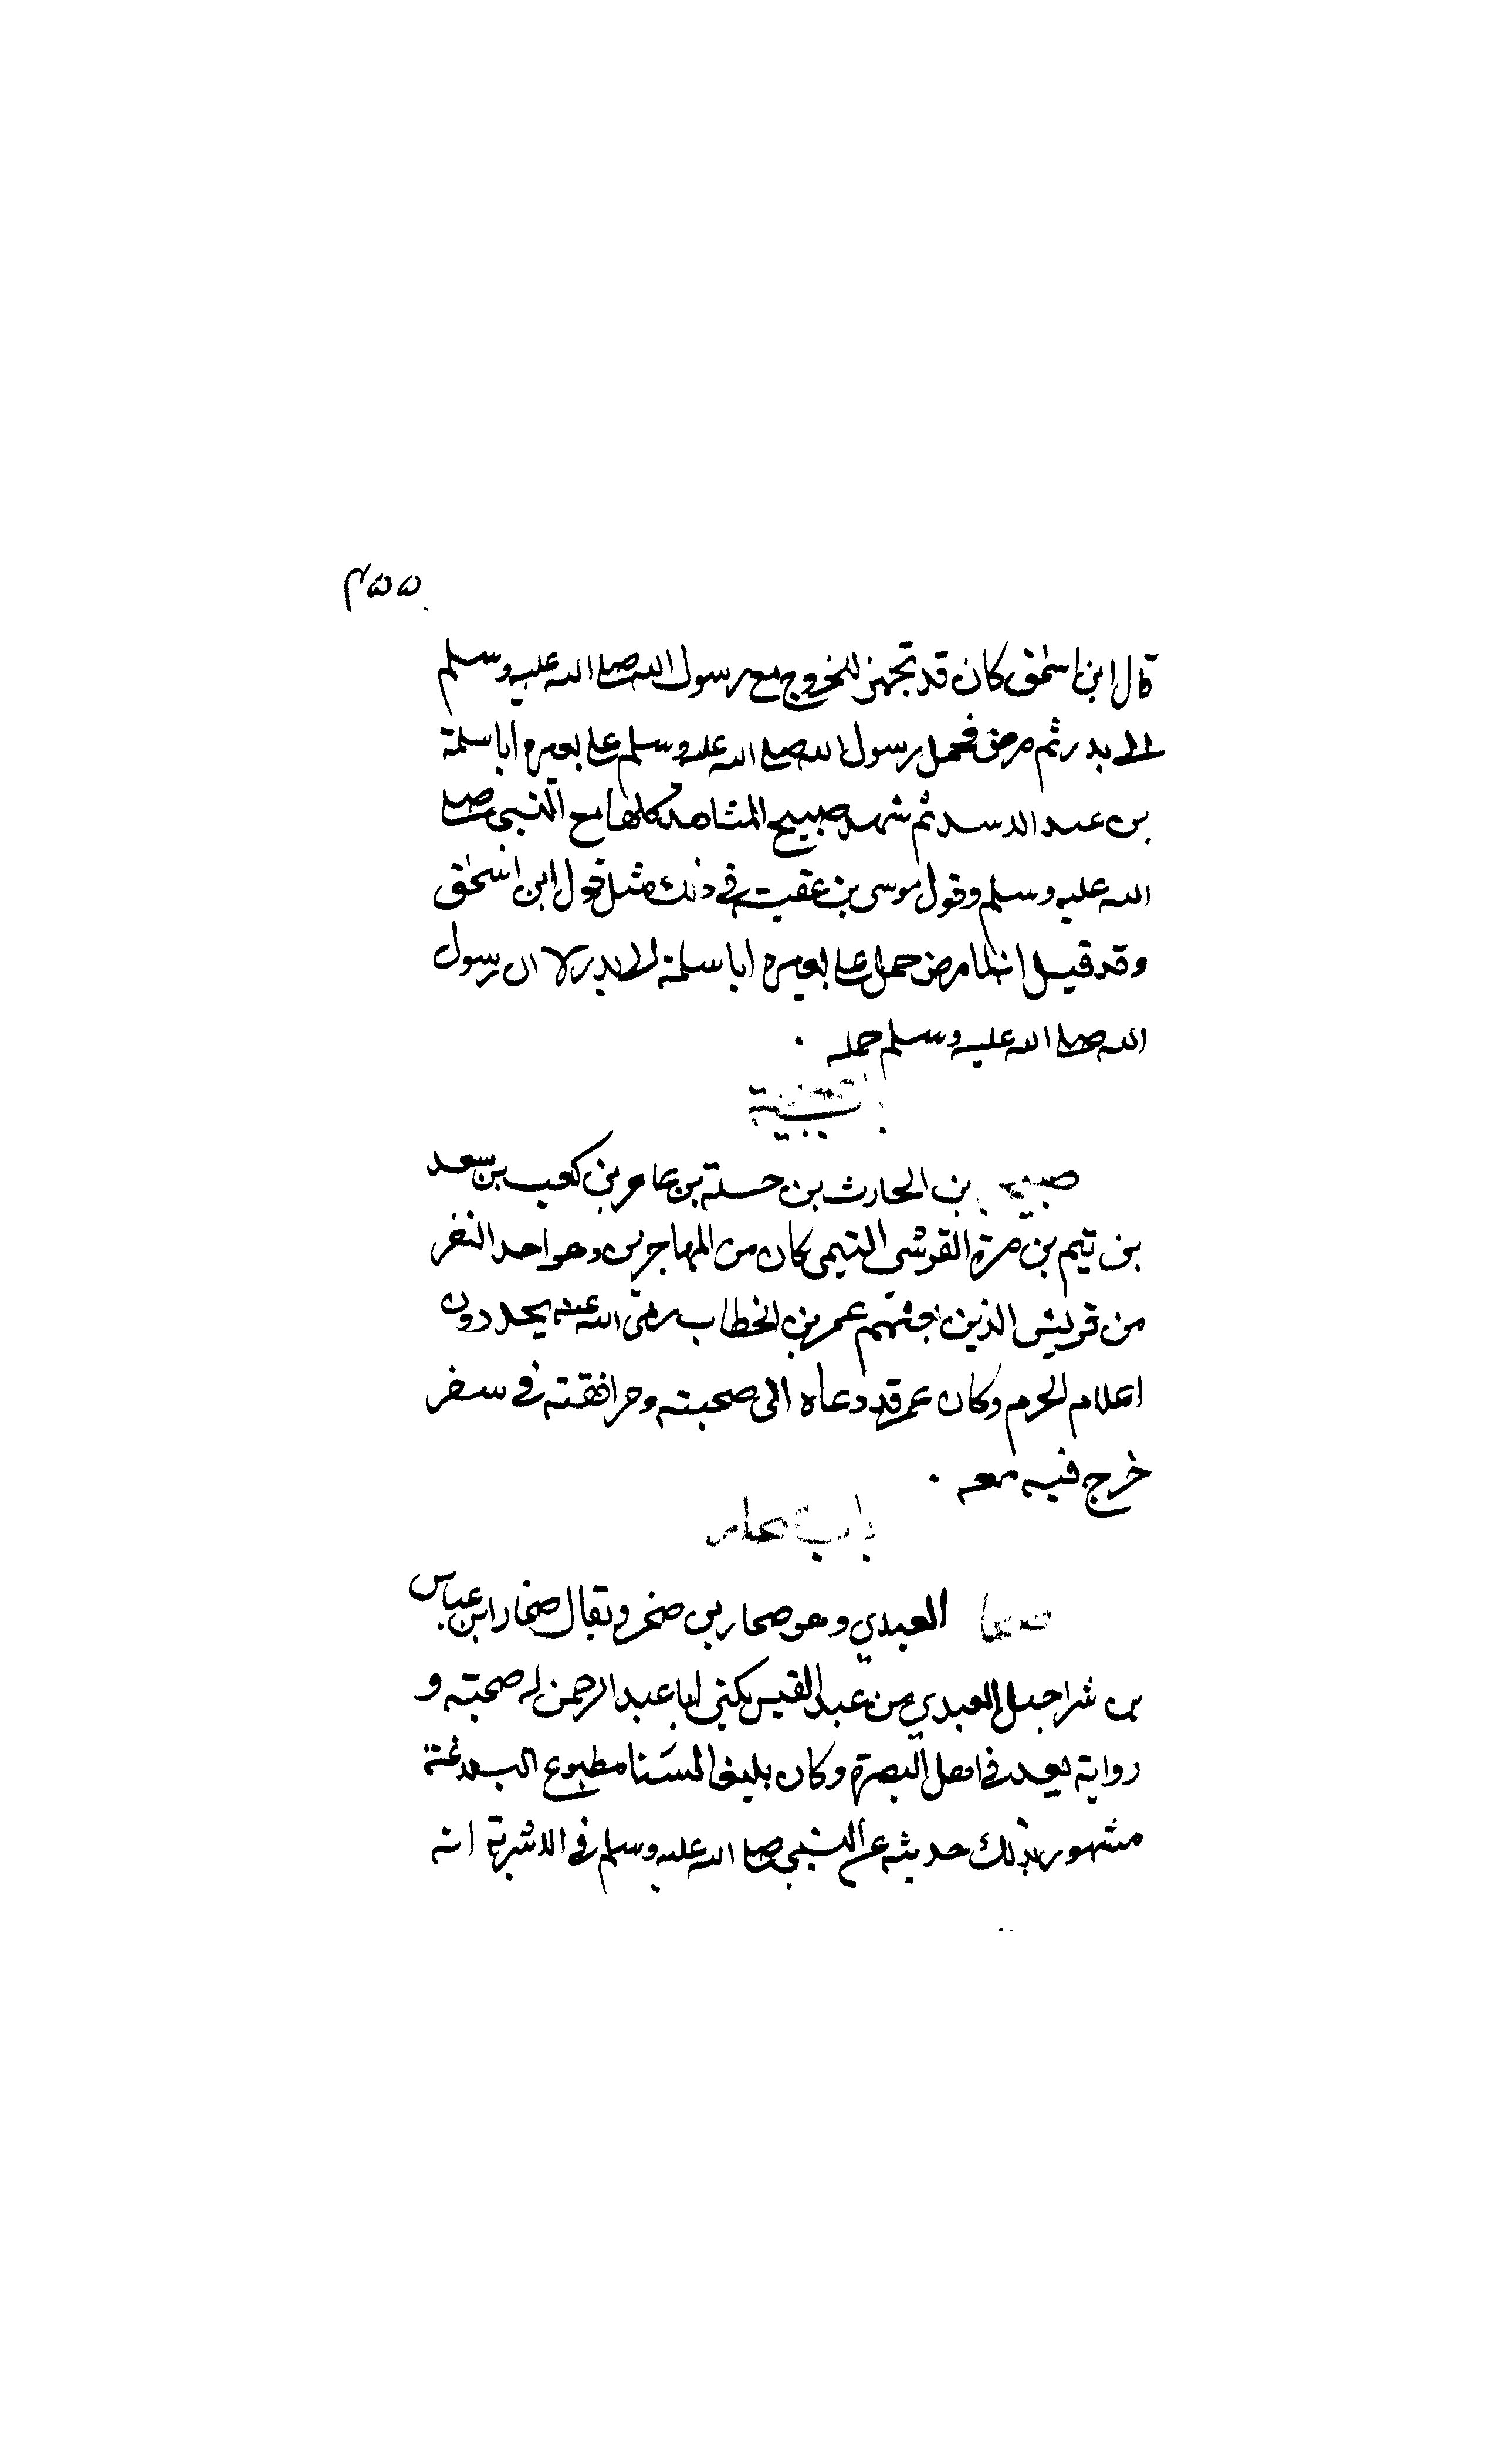 ٤٥٥
قال ابن اسحق كان قد تجهز للخروج مع رسول الله صلى الله عليه وسلم
الى بدر ثم مرض فحمل رسول الله صلى الله عليه وسلم على بعيره ابا سلمة
بن عبد الاسد ثم شهد صبيح المشاهد كلها مع النبي صلى
الله عليه وسلم وقول موسى بن عقبة في ذلك مثل قول ابن اسحق
وقد قيل انه لما مرض حمل على بعيره ابا سلمة الى بدر لا ان رسول
الله صلى الله عليه وسلم حمله .
بن الحارث بن حسنة بن عامر بن كعب بن سعد
بن تيم بن مرة القرشي التيمى كان من المهاجرين وهو احد النفر
من قريش الذين عمر بن الخطاب رضى الله عنه يحددون
اعلام الحرم وكان عمر قد دعاه الى صحبته ومرافقته في سفر
خرج فيه معه .
باب صحار
صحار العبدي وهو صحار بن صخر ويقال صحار ابن عباس
بن شراحيل العبدي من عبد القيس يكنى ابا عبد الرحمن له صحبته و
رواية يعد في اهل البصرة وكان بليغا لسنا مطبوع البلاغة
مشهور بذلك حديثه عن النبي صلى الله عليه وسلم في الاشربة انه